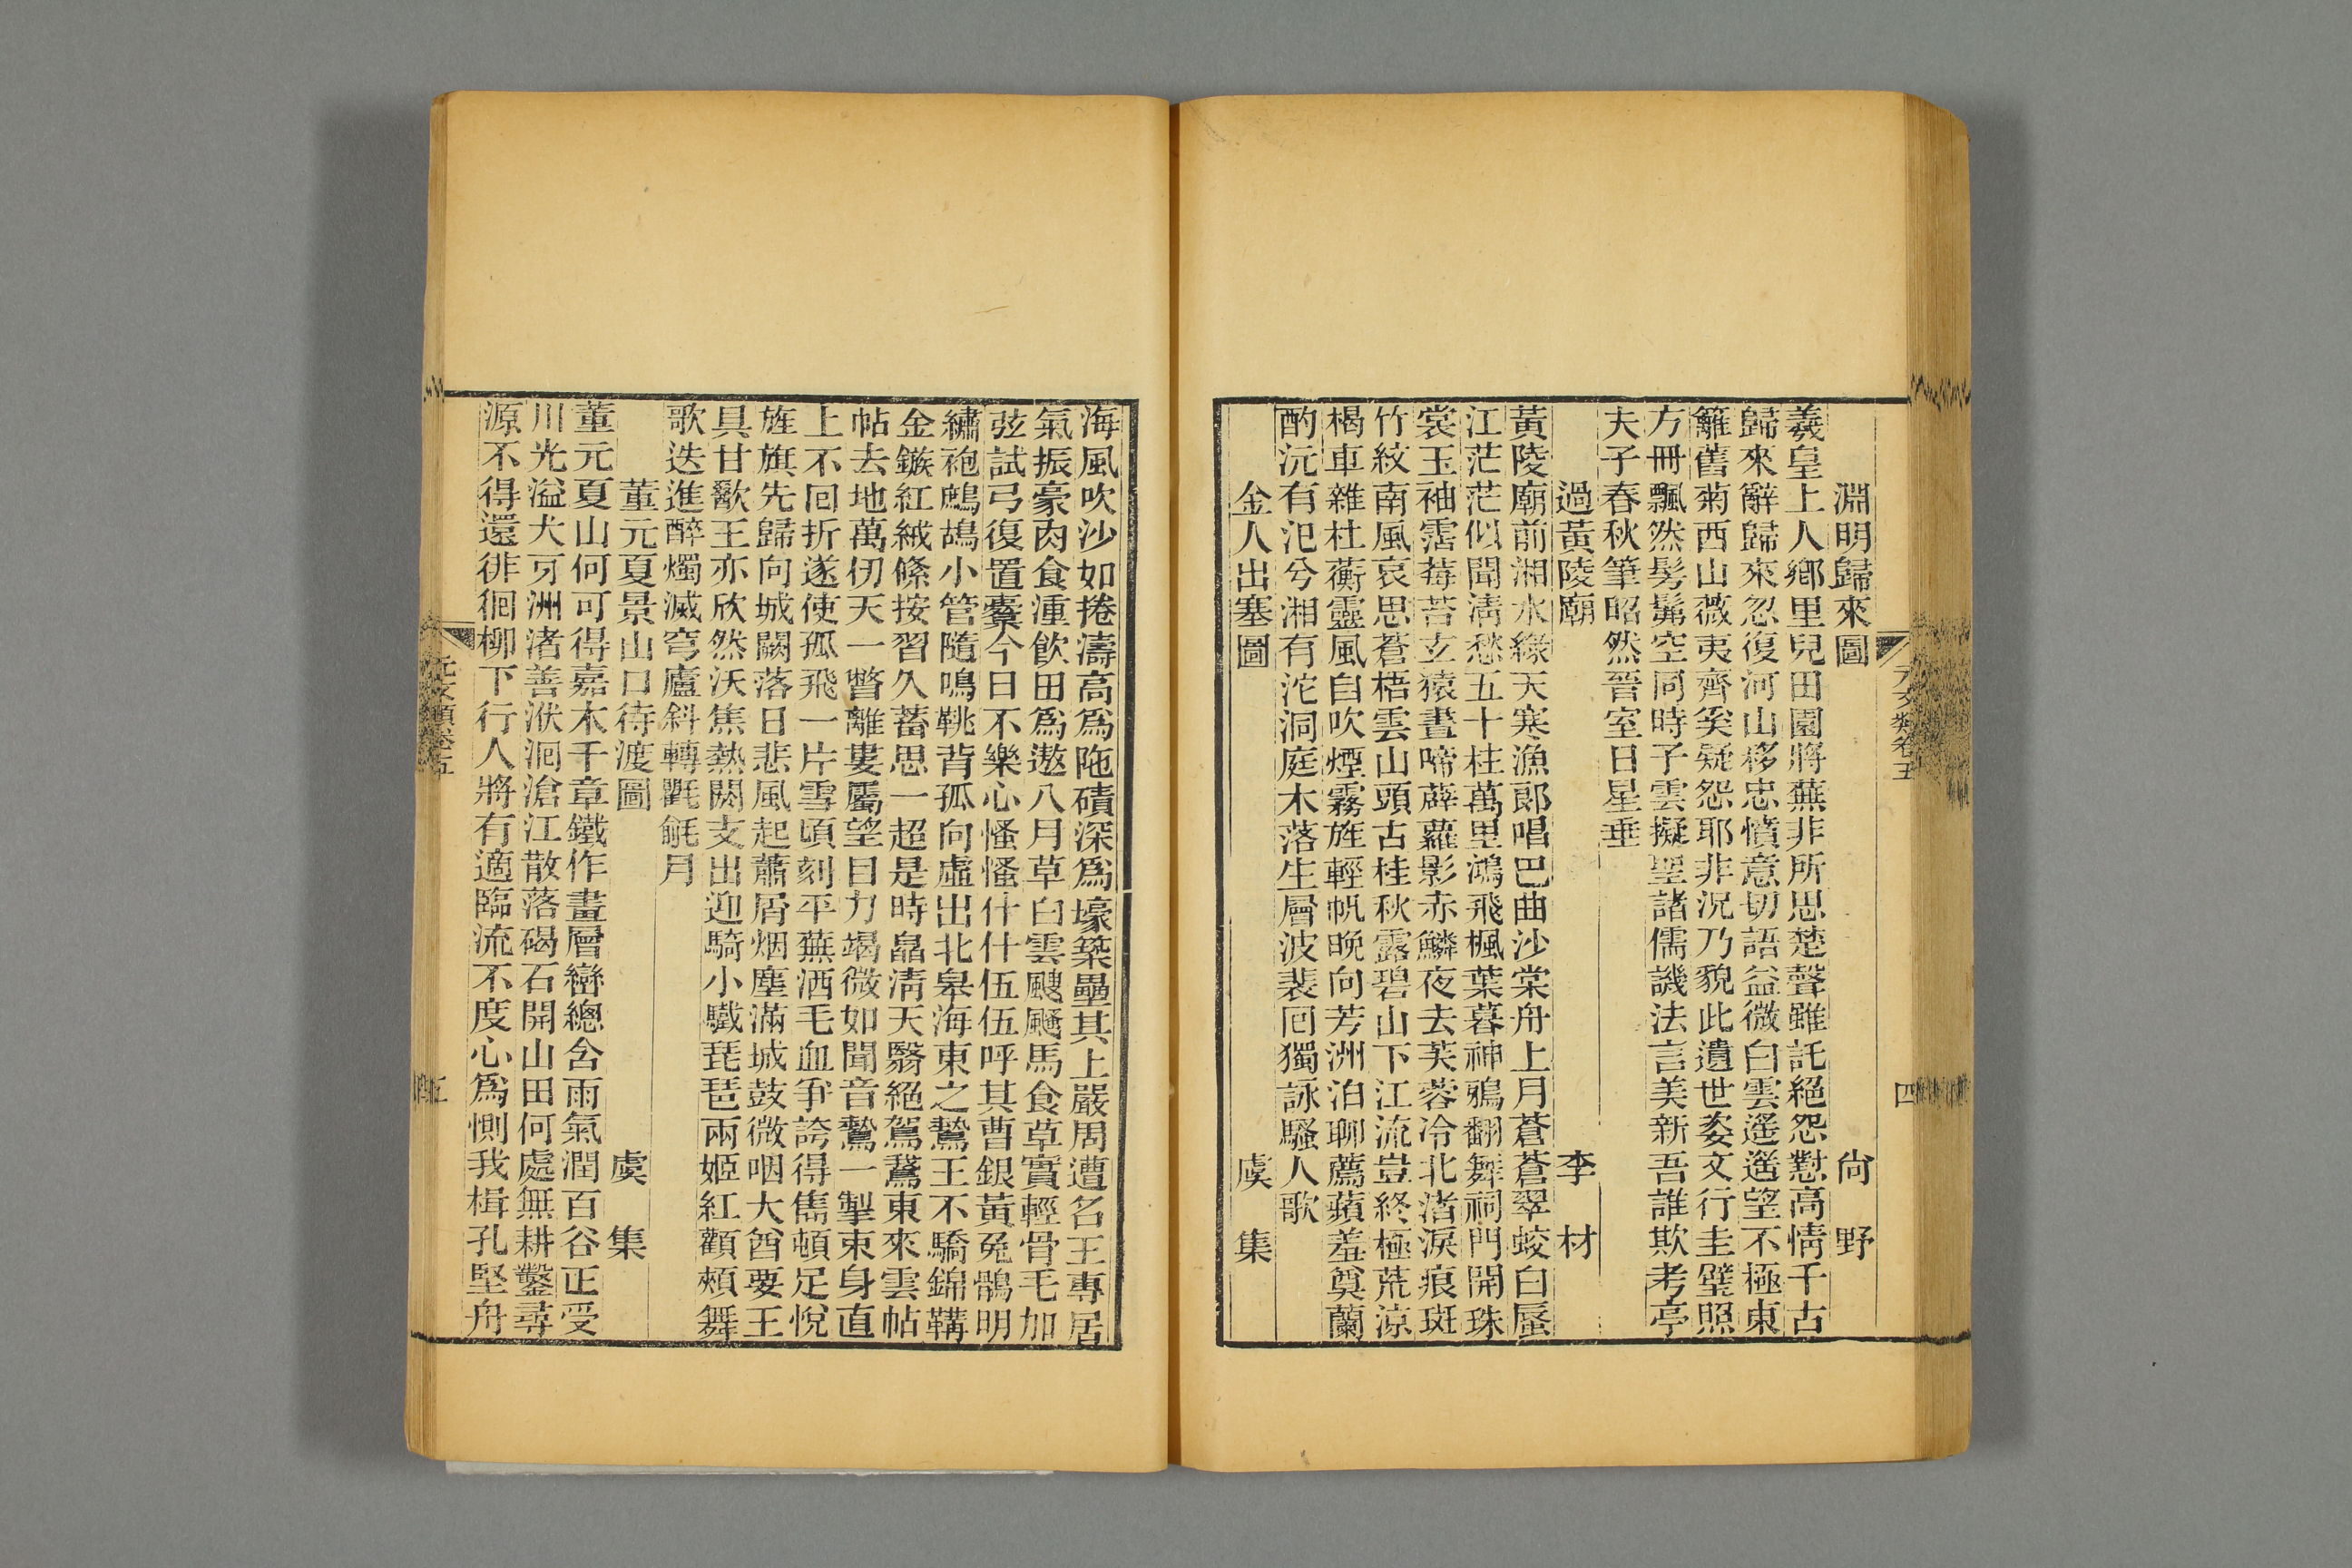 元文類卷五
四
淵明歸來圖 尙野
羲皇上人鄉里兒田園將蕪非所思楚聲雖託絕怨懟高情千古
歸來辭歸來忽復河山移忠憤意切語益微白雲遙遙望不極東
籬舊菊西山薇夷齊奚疑怨耶非況乃貌此遺世姿文行圭璧照
方冊飄然髣髴空同時子雲擬聖諸儒譏法言美新吾誰欺考亭
夫子春秋筆昭然晉室日星垂
過黃陵廟 李材
黃陵廟前湘水綠天寒漁郞唱巴曲沙棠舟上月蒼蒼翠蛟白蜃
江茫茫似聞淸愁五十柱萬里鴻飛楓葉暮神鴉翻舞祠門開珠
裳玉袖霑莓苔玄猿晝啼薜蘿影赤鱗夜去芙蓉冷北渚淚痕斑
竹紋南風哀思蒼梧雲山頭古桂秋露碧山下江流豈終極荒凉
楬車雜杜蘅靈風自吹煙霧旌輕帆晚向芳洲泊聊薦蘋羞奠蘭
酌沅有汜兮湘有沱洞庭木落生層波裴回獨詠騷人歌
金人出塞圖 虞集
海風吹沙如捲濤高爲陁磧深爲壕築壘其上嚴周遭名王專居
氣振豪肉食湩飮田爲遨八月草白雲颼飀馬食草實輕骨毛加
弦試弓復置櫜今日不樂心慅慅什什伍伍呼其曹銀黃兔鶻明
繡袍鷓鴣小管隨鳴鞉背孤向虛出北皋海東之鷙王不驕錦鞲
金鏃紅絨絛按習久蓄思一超是時皛淸天翳絕駕鵞東來雲帖
帖去地萬仞天一瞥離婁屬望目力竭微如聞音鷙一掣束身直
上不回折遂使孤飛一片雪頃刻平蕪洒毛血爭誇得雋頓足悅
旌旗先歸向城闕落日悲風起蕭屑烟塵滿城鼓微咽大酋要王
具甘歠王亦欣然沃焦熱閼支出迎騎小驖琵琶兩姬紅顴頰舞
歌迭進醉燭滅穹廬斜轉氍毹月
董元夏景山口待渡圖 虞集
董元夏山何可得嘉木千章鐵作畫層巒總含雨氣潤百谷正受
川光溢犬牙洲渚善洑洄滄江散落碣石開山田何處無耕鑿尋
源不得還徘徊柳下行人將有適臨流不度心爲惻我楫孔堅舟
元文類卷五
五